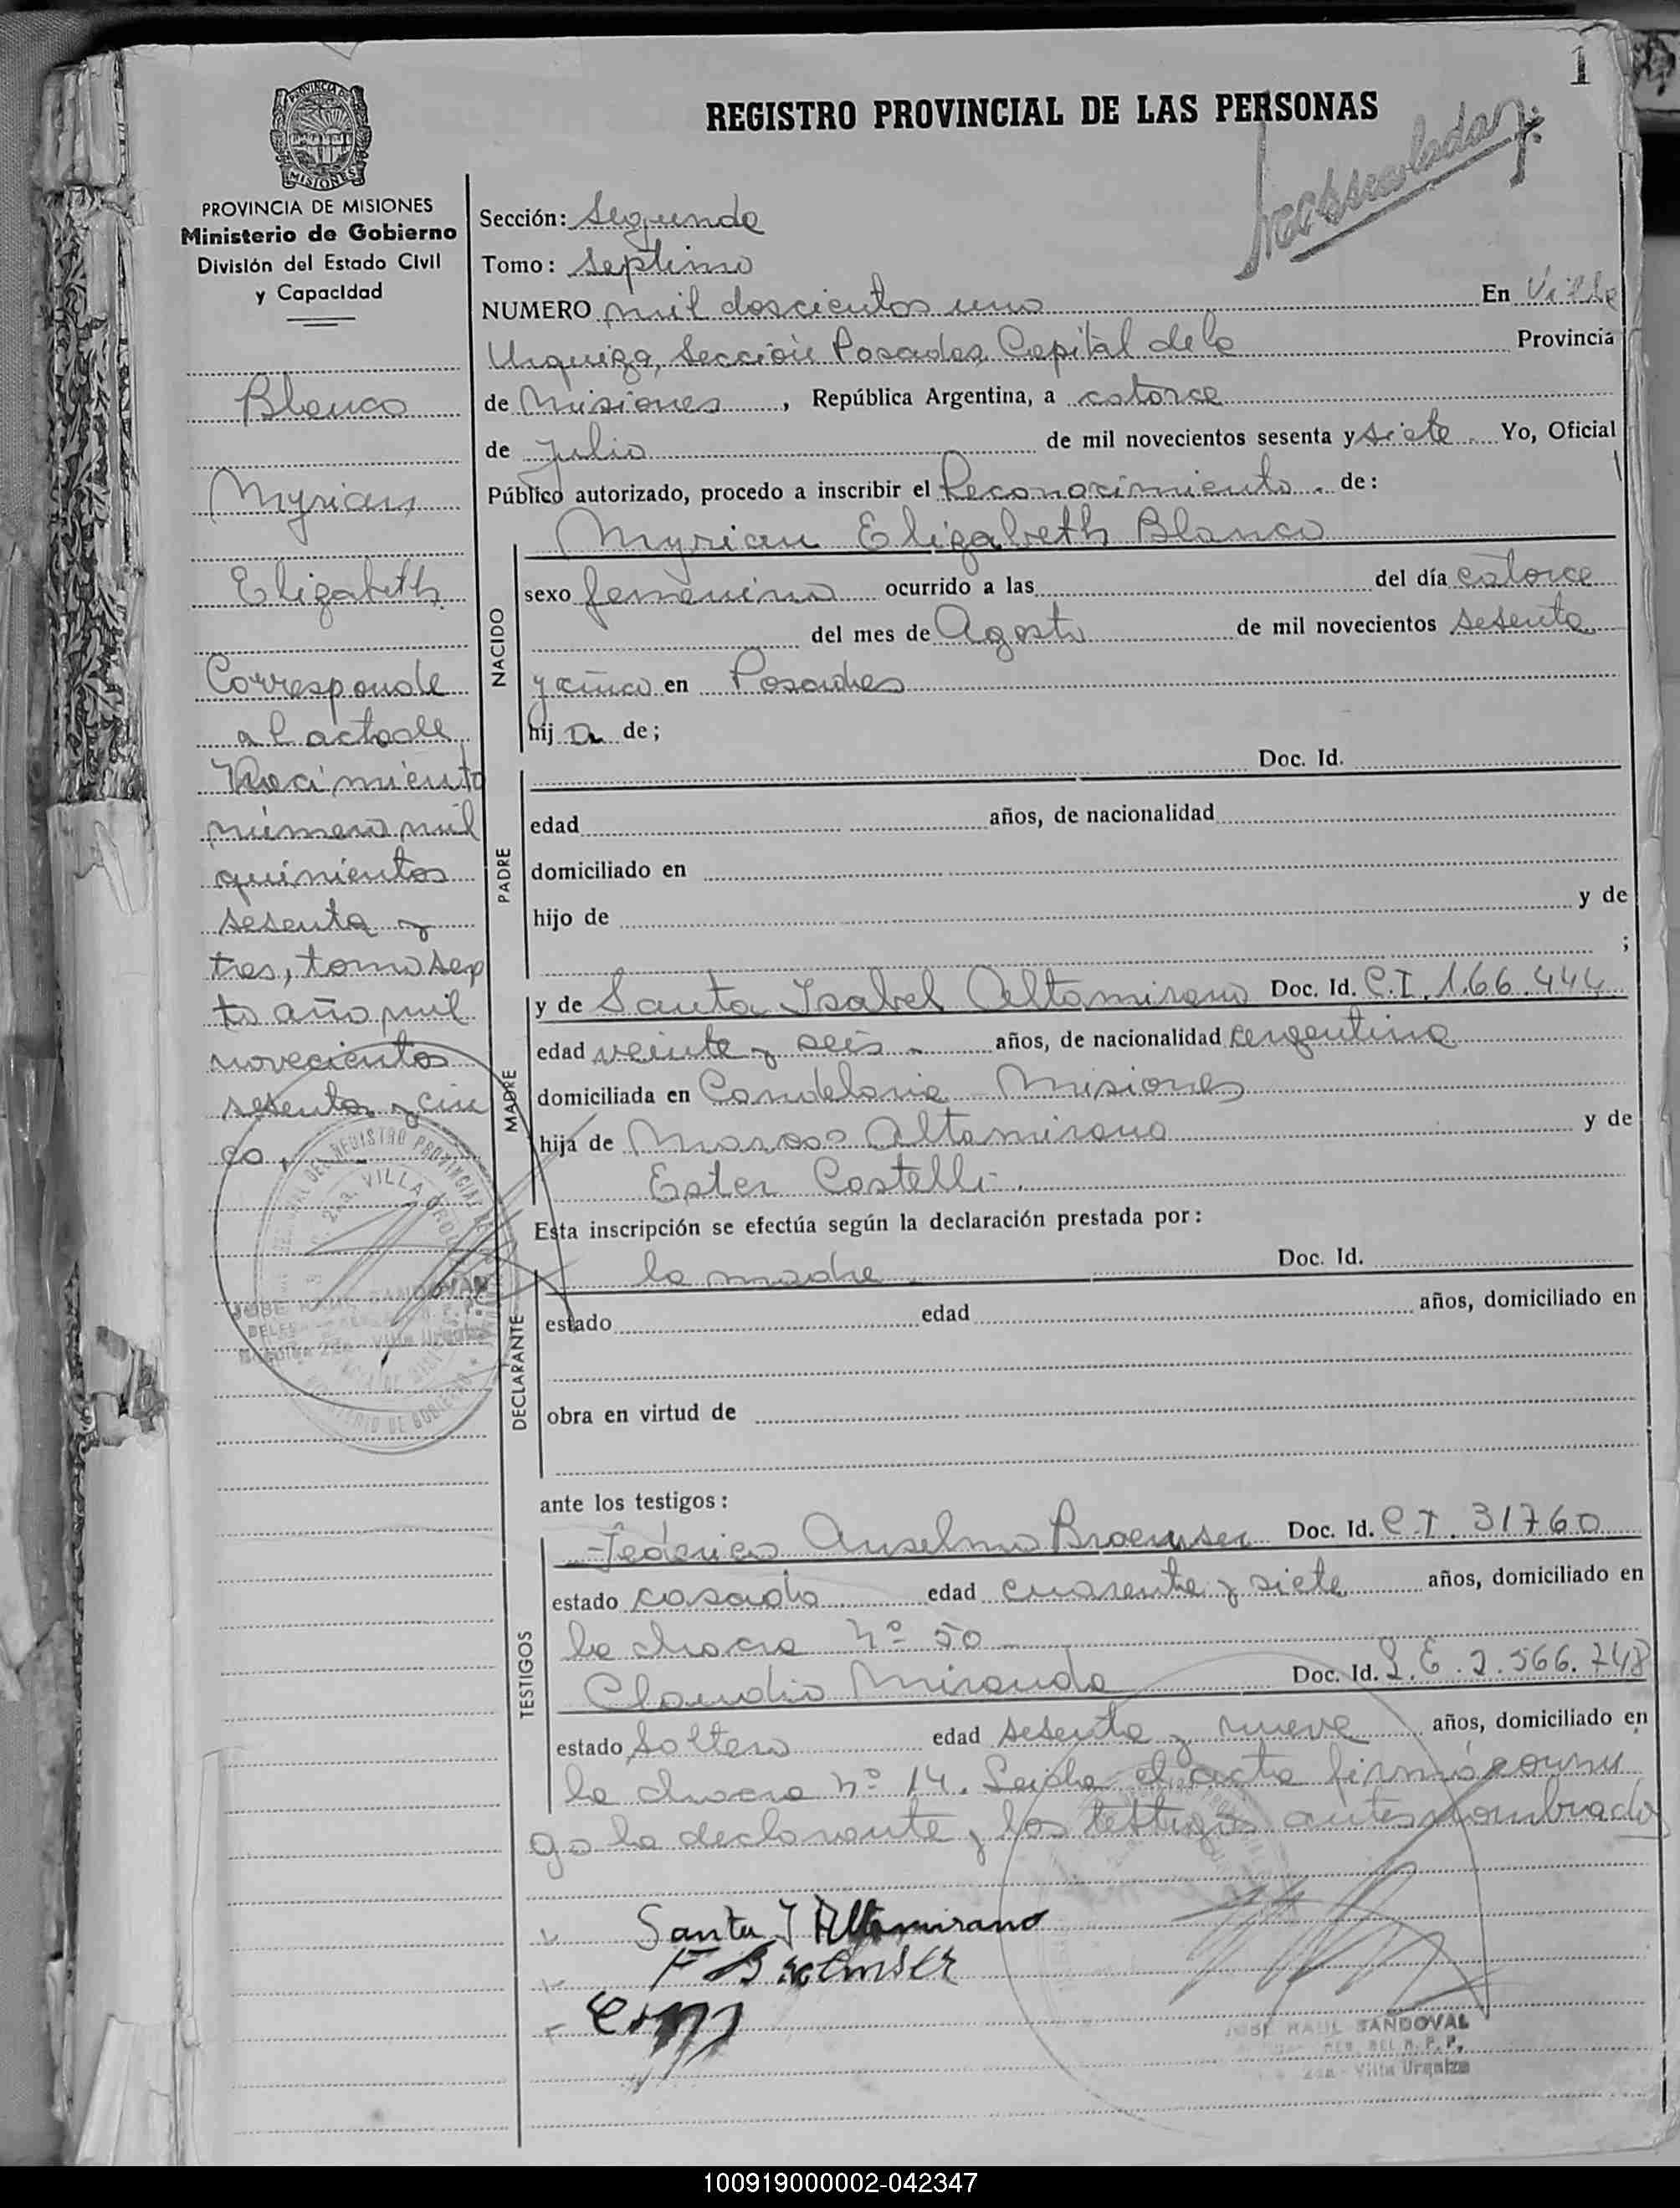 1
REGISTRO PROVINCIAL DE LAS PERSONAS
PROVINCIA DE MISIONES
Ministerio de Gobierno
División del Estado Civil
y Capacidad
Blanco
Myrian
Elizabeth
Corresponde
al acta de
Nacimiento
número mil
quinientos
sesenta y
tres, tomo sep
to año mil
novecientos
sesenta y cin
co.
Sección: Segunda
Tomo: Septimo
NUMERO mil doscientos uno En Villa
Urquiza, Sección Posadas, Capital de la Provincia
de Misiones, República Argentina, a catorce
de Julio de mil novecientos sesenta y siete Yo, Oficial
Público autorizado, procedo a inscribir el Reconocimiento. de:
Myrian Elizabeth Blanco
NACIDO
sexo femenino ocurrido a las del día catorce
del mes de Agosto de mil novecientos sesenta
y cinco en Posadas
hij a de;
PADRE
Doc. Id.
edad años, de nacionalidad
domiciliado en
hijo de y de
;
MADRE
y de Santa Isabel Altamirano Doc. Id. C.I. 166.444
edad veinte y seis años, de nacionalidad argentina
domiciliada en Candelaria Misiones
hija de Marcos Altamirano y de
Ester Costelli.
Esta inscripción se efectúa según la declaración prestada por:
DECLARANTE
la madre Doc. Id.
estado edad años, domiciliado en
obra en virtud de
ante los testigos:
TESTIGOS
Federico Anselmo Doc. Id. C.I. 31760
estado casado edad cuarenta y siete años, domiciliado en
la chacra nº 50
Claudio Miranda Doc. Id. L.E. 2.566.748
estado soltero edad sesenta y nueve años, domiciliado en
la chacra nº 14. Leida el acta firmó conmi
go la declarante y los testigos antes nombrados
Santa I Altamirano
F
JOSE RAUL SANDOVAL
DEL R.P.P.
2da Villa Urquiza
100919000002-042347